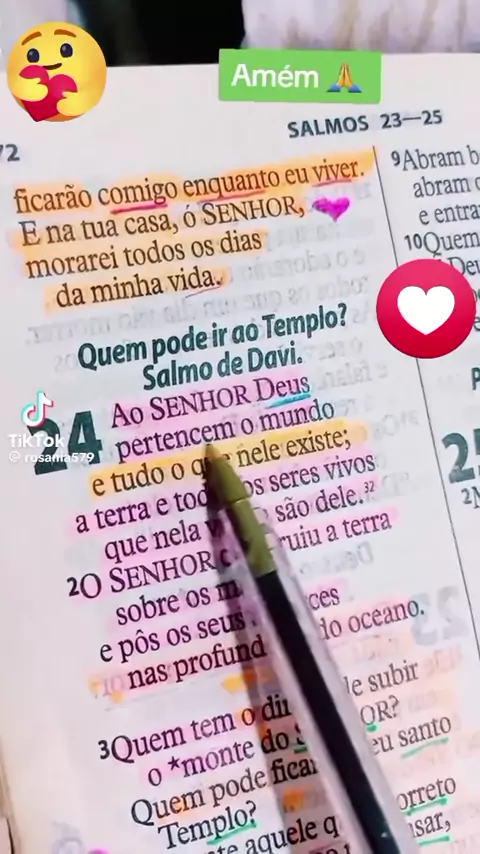 Amém
SALMOS 23—25
72
ficarão comigo enquanto eu viver.
E na tua casa, ó SENHOR,
morarei todos os dias
da minha vida.
Quem pode ir ao Templo?
Salmo de Davi.
24 Ao SENHOR Deus
pertencem o mundo
e tudo o que nele existe;
a terra e tod os seres vivos
que nela são dele.³²
2O SENHOR ruiu a terra
sobre os ces
e pôs os seus do oceano.
nas profund
3Quem tem o subir
o *monte do
Quem pode ficar eu santo
Templo?
aquele q orreto
9Abram
abram
e entra
10Quem
Deu
25
TikTok
@rosania579